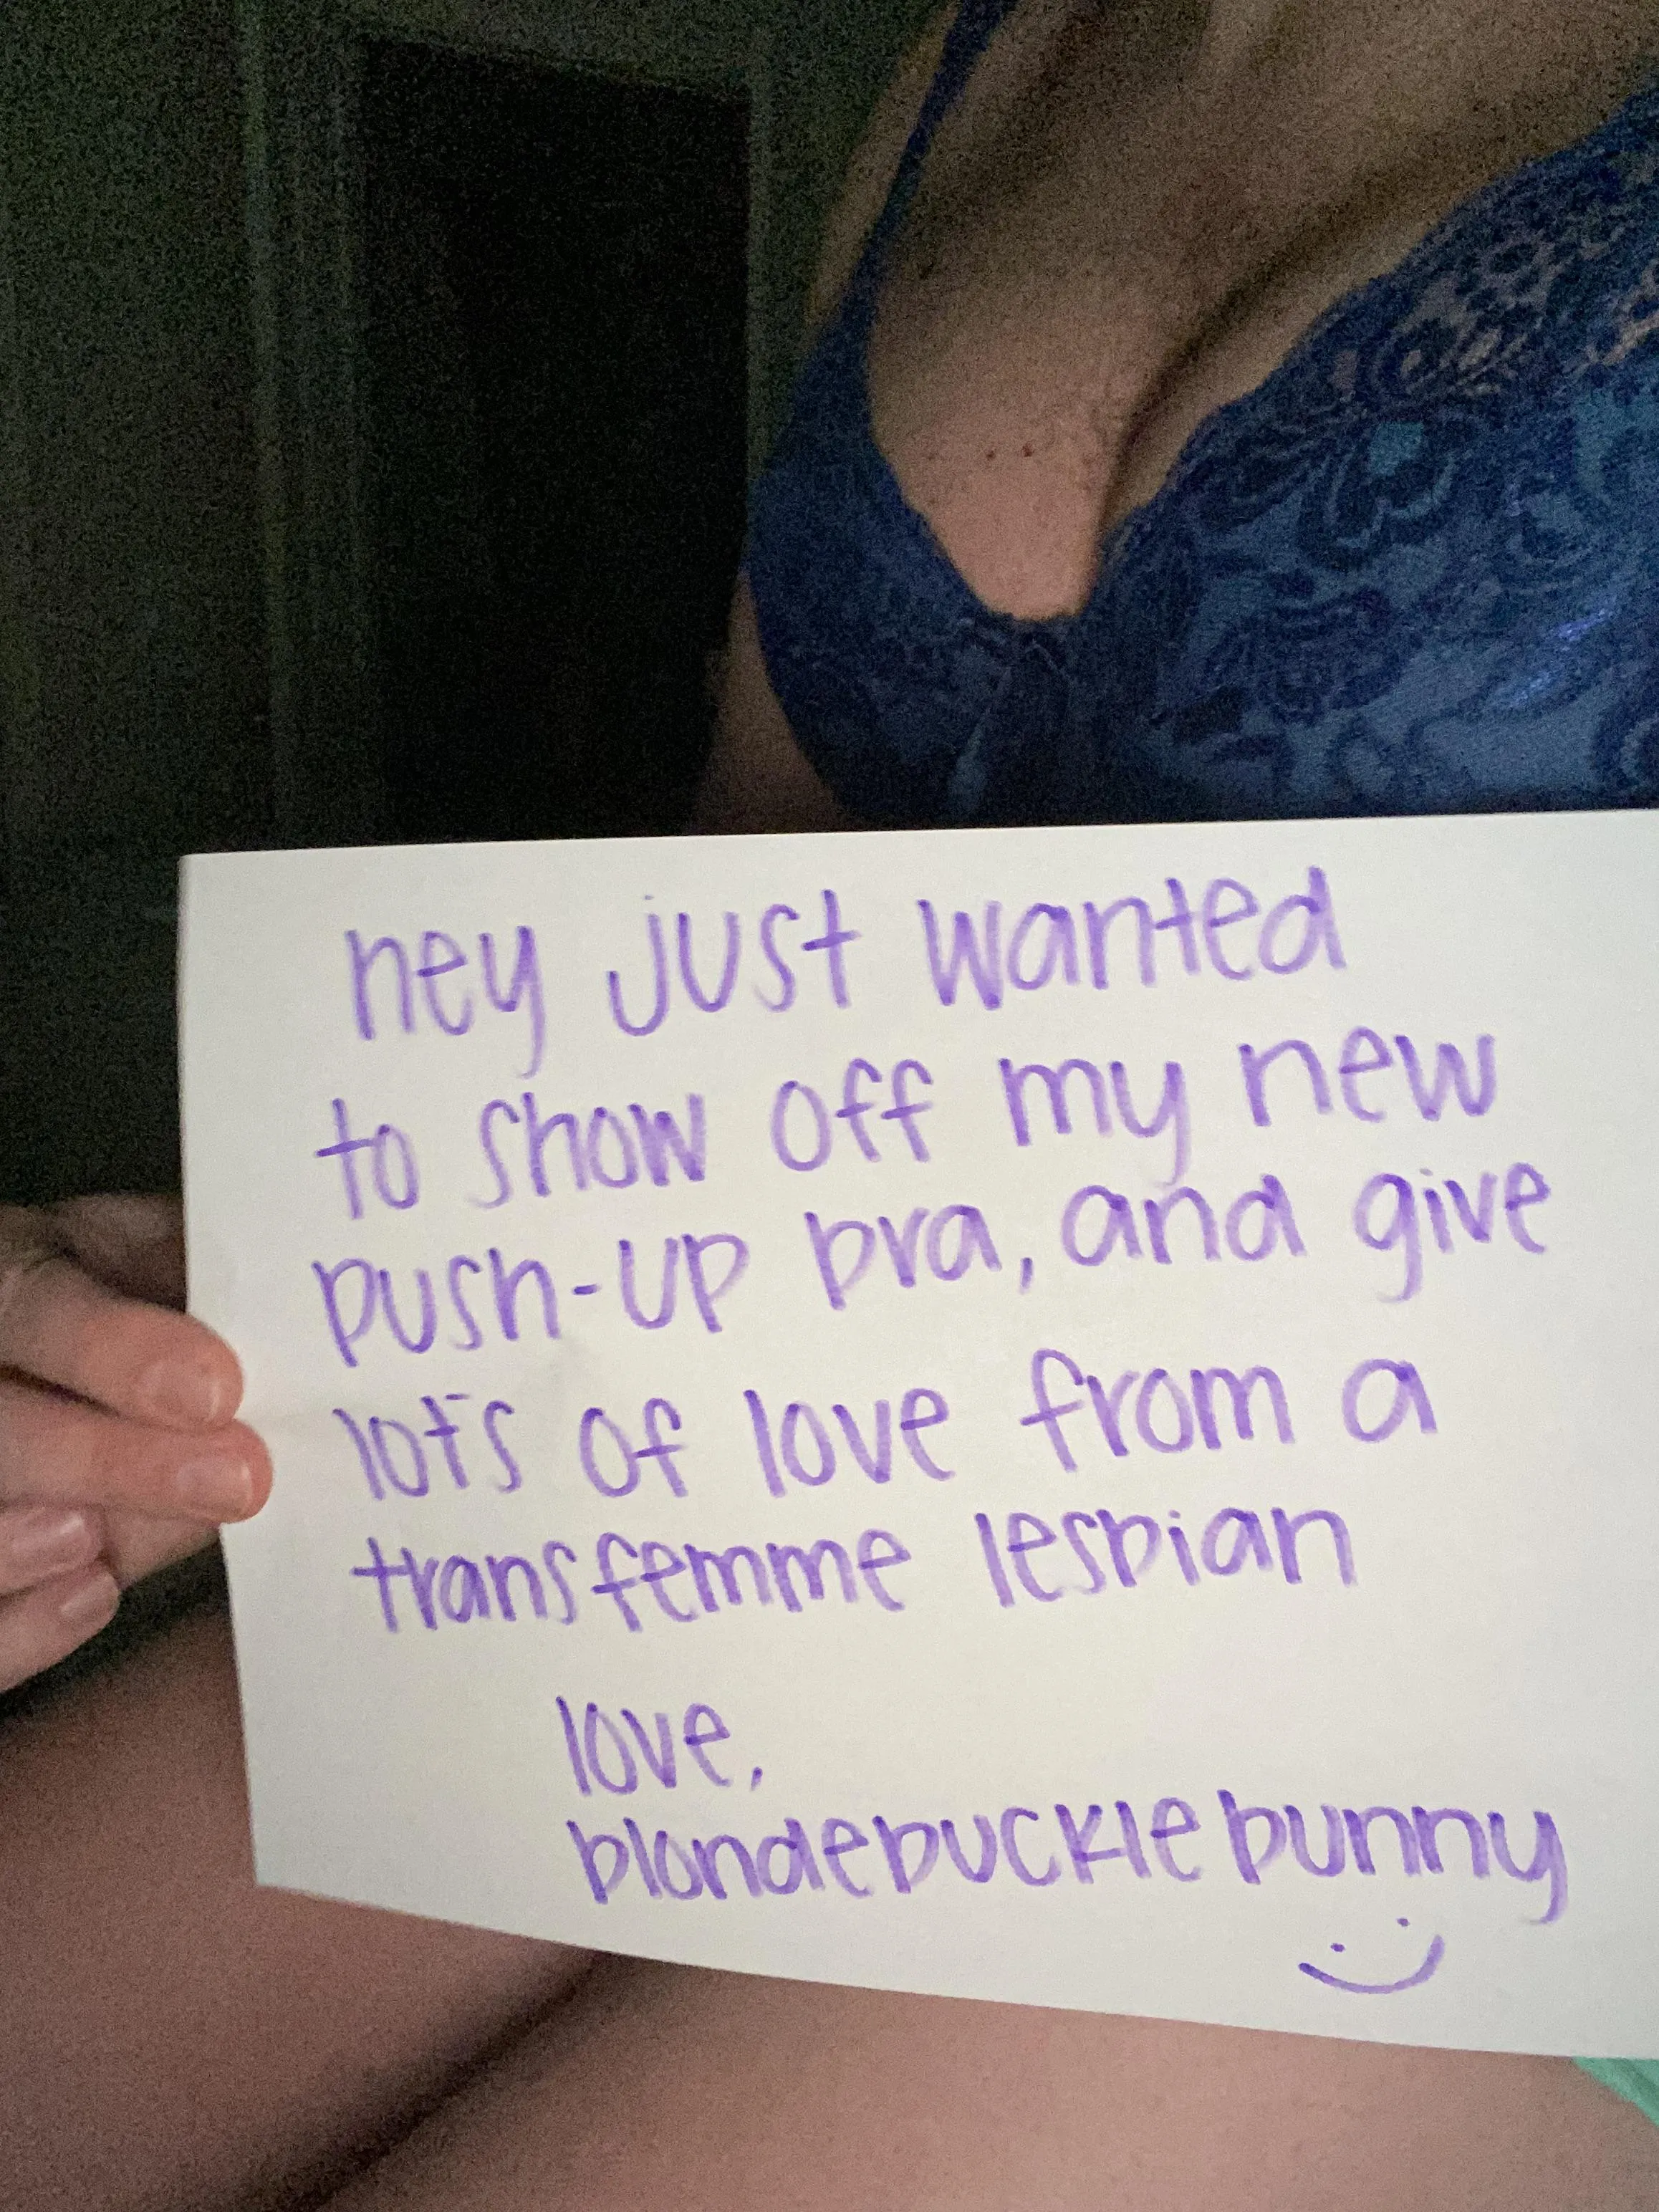 hey just wanted
to show off my new
push-up bra, and give
lots of love from a
transfemme lesbian
love,
blondebucklebunny